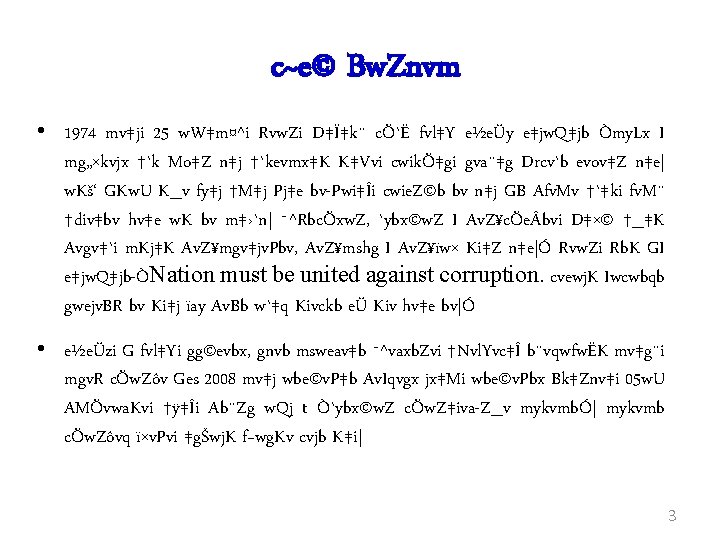 c~e© Bw.Znvm
• 1974 mv‡ji 25 w.W‡m¤^i Rvw.Zi D‡Ï‡k¨ cÖ`Ë fvl‡Y e½eÜy e‡jw.Q‡jb Òmy.Lx I
mg„×kvjx †`k Mo‡Z n‡j †`kevmx‡K K‡Vvi cwikÖ‡gi gva¨‡g Drcv`b evov‡Z n‡e|
w.Kš‘ GKw.U K_v fy‡j †M‡j Pj‡e bv-Pwi‡Îi cwie.Z©b bv n‡j GB Afv.Mv †`‡ki fv.M¨
†div‡bv hv‡e w.K bv m‡›`n| ¯^RbcÖxw.Z, `ybx©w.Z I Av.Z¥cÖeÂbvi D‡×© †_‡K
Avgv‡`i m.Kj‡K Av.Z¥mgv‡jv.Pbv, Av.Z¥mshg I Av.Z¥ïw× Ki‡Z n‡e|Ó Rvw.Zi Rb.K GI
e‡jw.Q‡jb-ÒNation must be united against corruption. cvewj.K Iwcwbqb
gwejv.BR bv Ki‡j ïay Av.Bb w`‡q Kivckb eÜ Kiv hv‡e bv|Ó
• e½eÜzi G fvl‡Yi gg©evbx, gnvb msweav‡b ¯^vaxb.Zvi †Nvl.Yvc‡Î b¨vqwfwËK mv‡g¨i
mgv.R cÖw.Zôv Ges 2008 mv‡j wbe©v.P‡b Av.Iqvgx jx‡Mi wbe©v.Pbx Bk‡Znv‡i 05 w.U
AMÖvwa.Kvi †ÿ‡Îi Ab¨.Zg w.Qj t Ò`ybx©w.Z cÖw.Z‡iva-Z_v mykvmbÓ| mykvmb
cÖw.Zôvq ï×v.Pvi ‡gŠwj.K f‚wg.Kv cvjb K‡i|
3